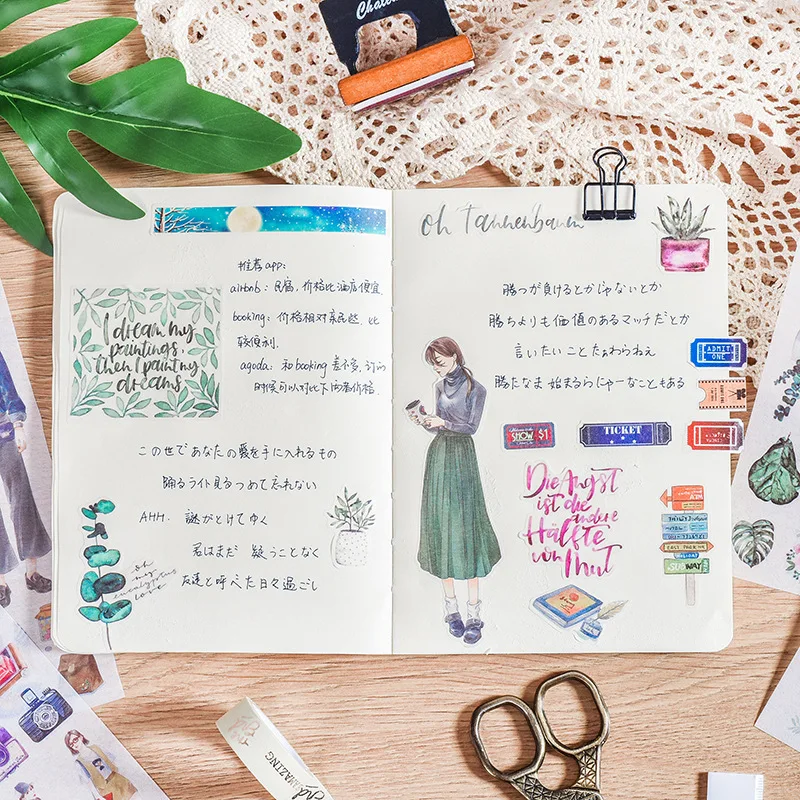 oh Tannenbaum
推荐app:
airbnb: 民宿,价格比酒店便宜.
booking: 价格相对亲民些,比
较便利.
agoda: 和booking差不多,订的
时候可以对比下两者价格.
I dream my
paintings,
then I paint my
dreams
この世であなたの愛を手に入れるもの
踊るライト見るつめて忘れない
AHH. 謎がとけてゆく
君はまだ 疑うことなく
友達と呼べた日々過ごし
oh
my
eucalyptus
love
勝つが負けるとかじゃないとか
勝ちよりも価値のあるマッチだとか
言いたいこと
勝たなま 始まるらにゃーなこともある
ADMIT
ONE
SHOW $1
TICKET
Die Angst
ist die
andere
Hälfte
von Mut
SUBWAY
AMAZING